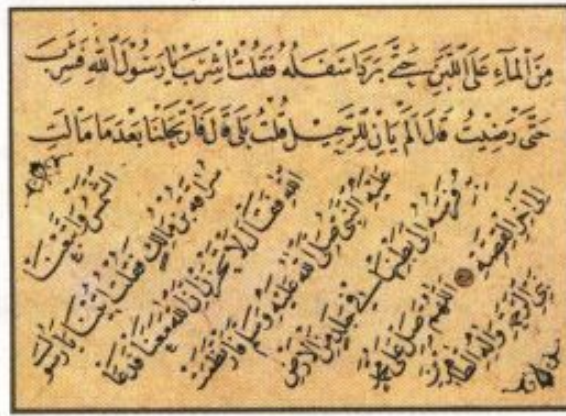 مِنَ الْمَآءِ عَلَى اللَّبَنِ حَتّٰى بَرَدَ اَسْفَلُهُ فَقُلْتُ اشْرَبْ يَا رَسُوْلَ اللهِ فَشَرِبَ
حَتّٰى رَضِيْتُ قَالَ اَلَمْ يَانِ لِلرَّحِيْلِ قُلْتُ بَلٰى قَالَ فَارْتَحَلْنَا بَعْدَ مَا مَالَتِ
الشَّمْسُ وَاتَّبَعَنَا
سُرَاقَةُ بْنُ مَالِكٍ فَقُلْتُ اُتِيْنَا يَا رَسُوْلَ
اللهِ فَقَالَ لَا تَحْزَنْ اِنَّ اللهَ مَعَنَا فَدَعَا
عَلَيْهِ النَّبِيُّ صَلَّى اللهُ عَلَيْهِ وَسَلَّمَ فَارْتَطَمَتْ
بِهِ فَرَسُهُ اِلٰى بَطْنِهَا فِيْ جَلَدٍ مِنَ الْاَرْضِ
اِلٰى اٰخِرِ الْقِصَّةِ اَللّٰهُمَّ صَلِّ عَلٰى مُحَمَّدٍ
نَبِيِّ الرَّحْمَةِ وَاٰلِهِ الطَّاهِرِيْنَ